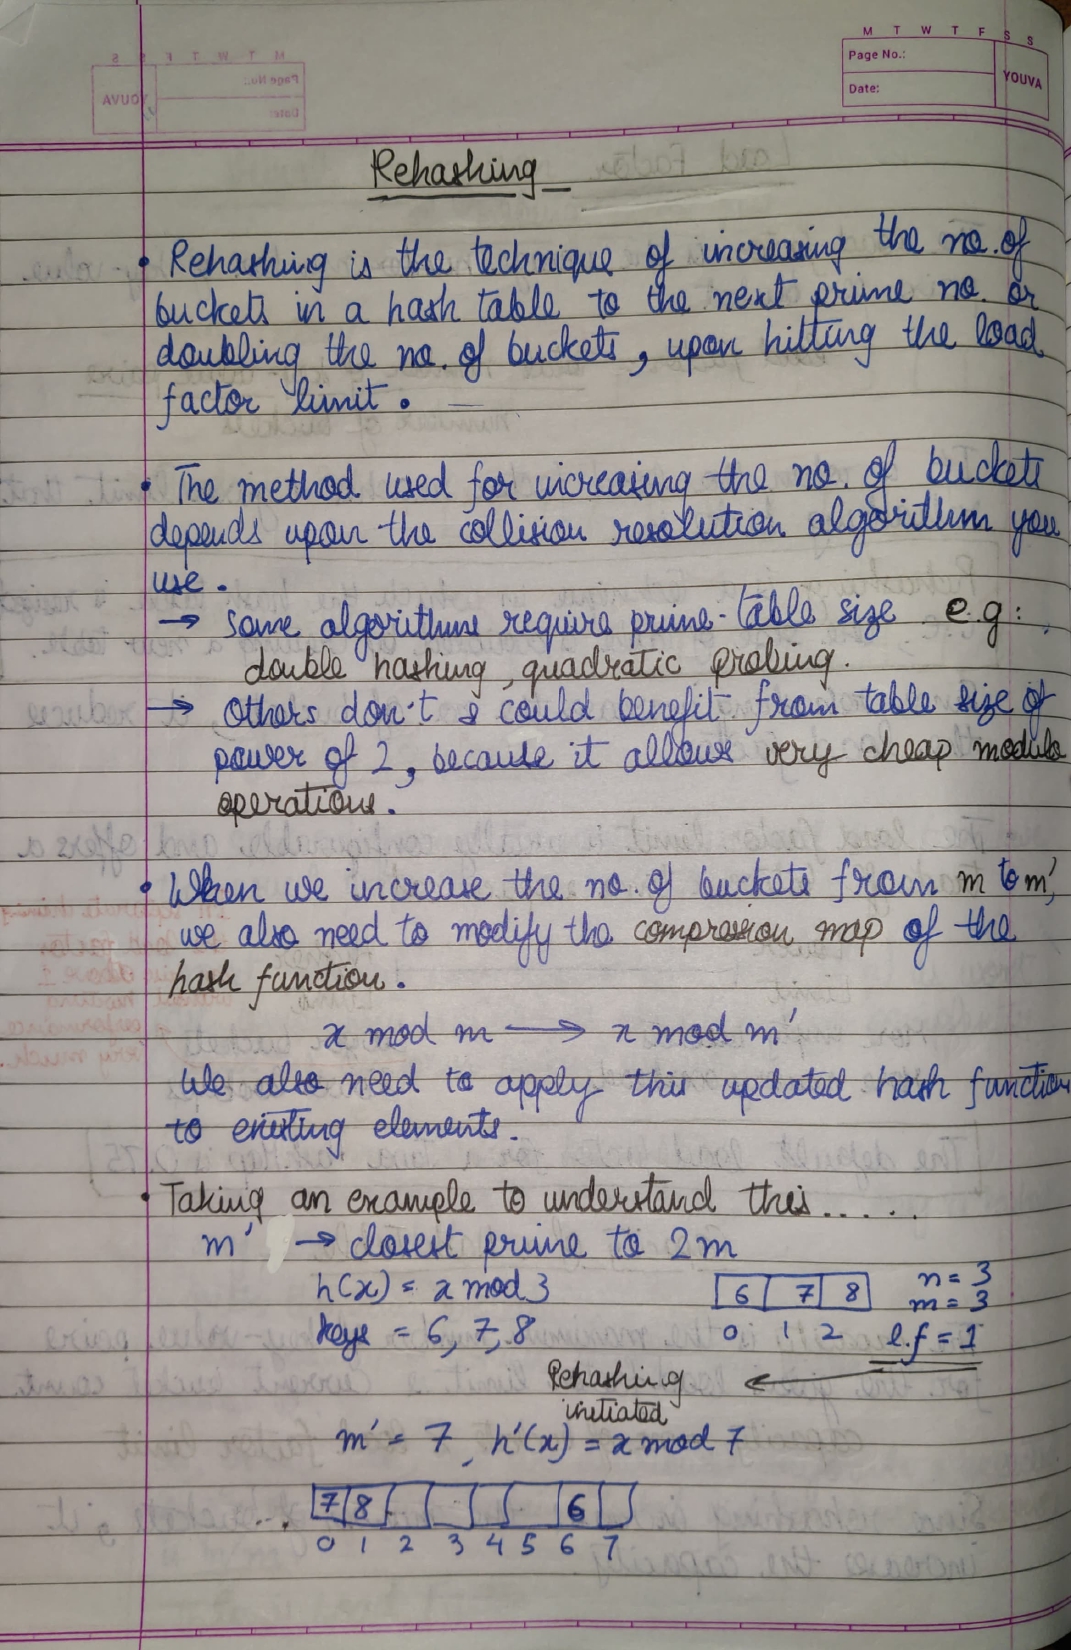 M T W T F S S
Page No.:
Date:
YOUVA
Rehashing
• Rehashing is the technique of increasing the no. of
buckets in a hash table to the next prime no. or
doubling the no. of buckets, upon hitting the load
factor limit.
• The method used for increasing the no. of buckets
depends upon the collision resolution algorithm you
use.
→ Some algorithms require prime-table size e.g:
double hashing, quadratic probing.
→ Others don't & could benefit from table size of
power of 2, because it allows very cheap modulo
operations.
• When we increase the no. of buckets from m to m',
we also need to modify the compression map of the
hash function.
x mod m → x mod m'
We also need to apply this updated hash function
to existing elements.
• Taking an example to understand this.....
m' → closest prime to 2m
h(x) = x mod 3 6 7 8 n = 3
m = 3
keys = 6, 7, 8 0 1 2 l.f = 1
Rehashing ←
initiated
m' = 7, h'(x) = x mod 7
7 8 6
0 1 2 3 4 5 6 7